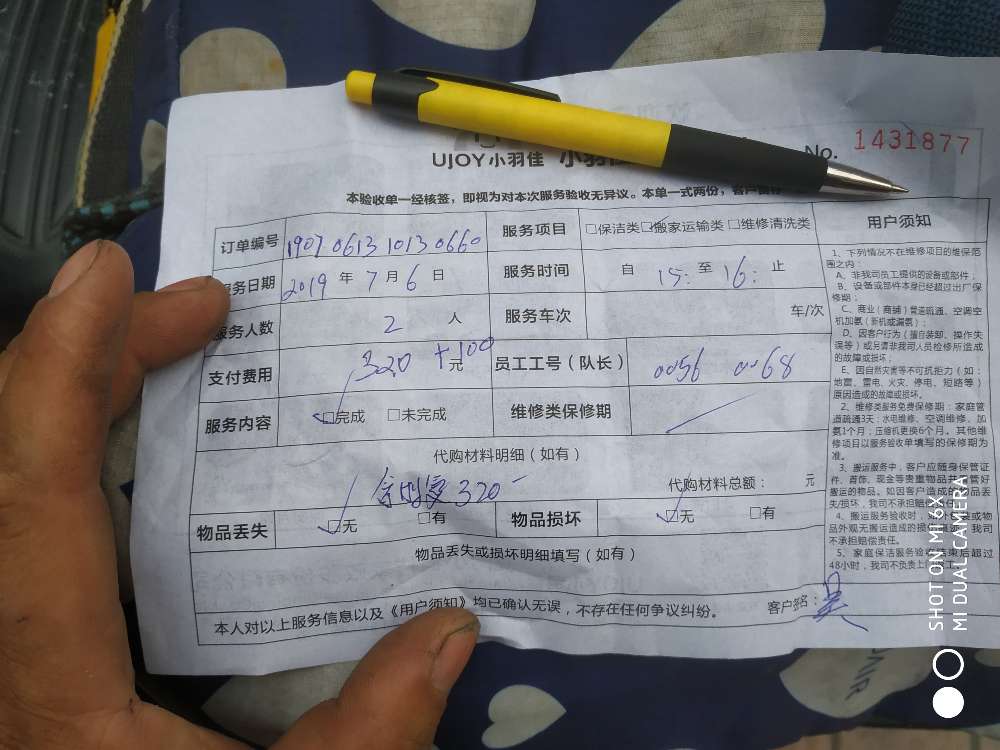 UJOY小羽佳 小羽佳
No. 1431877
本验收单一经核签，即视为对本次服务验收无异议。本单一式两份，客户
订单编号 1907 0613 1013 0660 服务项目 □保洁类 □搬家运输类 □维修清洗类
服务日期 2019 年 7 月 6 日 服务时间 自 15: 至 16: 止
服务人数 2 人 服务车次 车/次
支付费用 320 +100 元 员工工号（队长） 0056 0068
服务内容 □完成 □未完成 维修类保修期
代购材料明细（如有）
320 代购材料总额： 元
物品丢失 □无 □有 物品损坏 □无 □有
物品丢失或损坏明细填写（如有）
本人对以上服务信息以及《用户须知》均已确认无误，不存在任何争议纠纷。 客户签名：吴
用户须知
1、下列情况不在维修项目的维保范
围之内：
A、非我司员工提供的设备或部件；
B、设备或部件本身已经超过出厂保
修期；
C、商业（商铺）管道疏通、空调空
机加氨（新机或漏氨）；
D、因客户行为（擅自装卸、操作失
误等）或另请非我司人员检修所造成
的故障或损坏；
E、因自然灾害等不可抗拒力（如：
地震、雷电、火灾、停电、短路等）
原因造成的故障或损坏。
2、维修类服务免费保修期：家庭管
道疏通3天；水电维修、空调维修、加
氨1个月；压缩机更换6个月。其他维
修项目以服务验收单填写的保修期为
准。
3、搬运服务中，客户应随身保管证
件、首饰、现金等贵重物品并看管好
搬运的物品。如因客户造成的物品丢
失/损坏，我司不承担赔偿责任。
4、搬运服务验收时，
物品外观无搬运造成的损 我司
不承担赔偿责任。
5、家庭保洁服务验收结束后超过
48小时，我司不负责
SHOT ON MI 6X
MI DUAL CAMERA